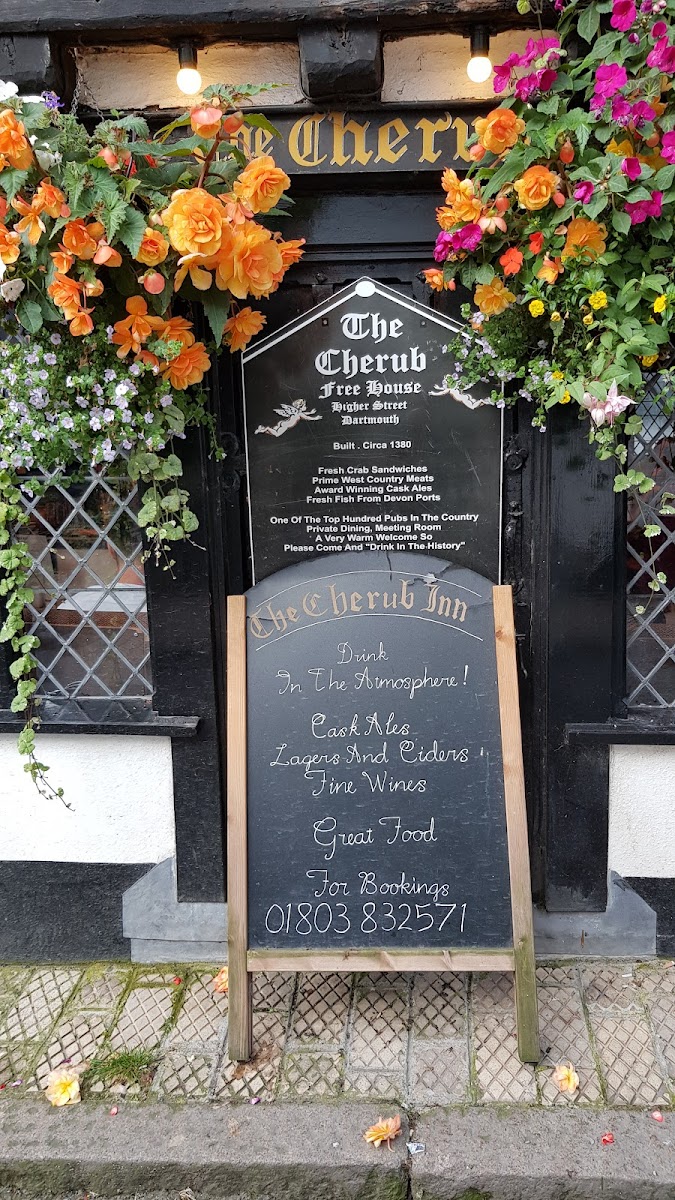 The Cherub
The
Cherub
Free House
Higher Street
Dartmouth
Built . Circa 1380
Fresh Crab Sandwiches
Prime West Country Meats
Award Winning Cask Ales
Fresh Fish From Devon Ports
One Of The Top Hundred Pubs In The Country
Private Dining, Meeting Room
A Very Warm Welcome So
Please Come And "Drink In The History"
The Cherub Inn
Drink
In The Atmosphere!
Cask Ales
Lagers And Ciders
Fine Wines
Great Food
For Bookings
01803 832571